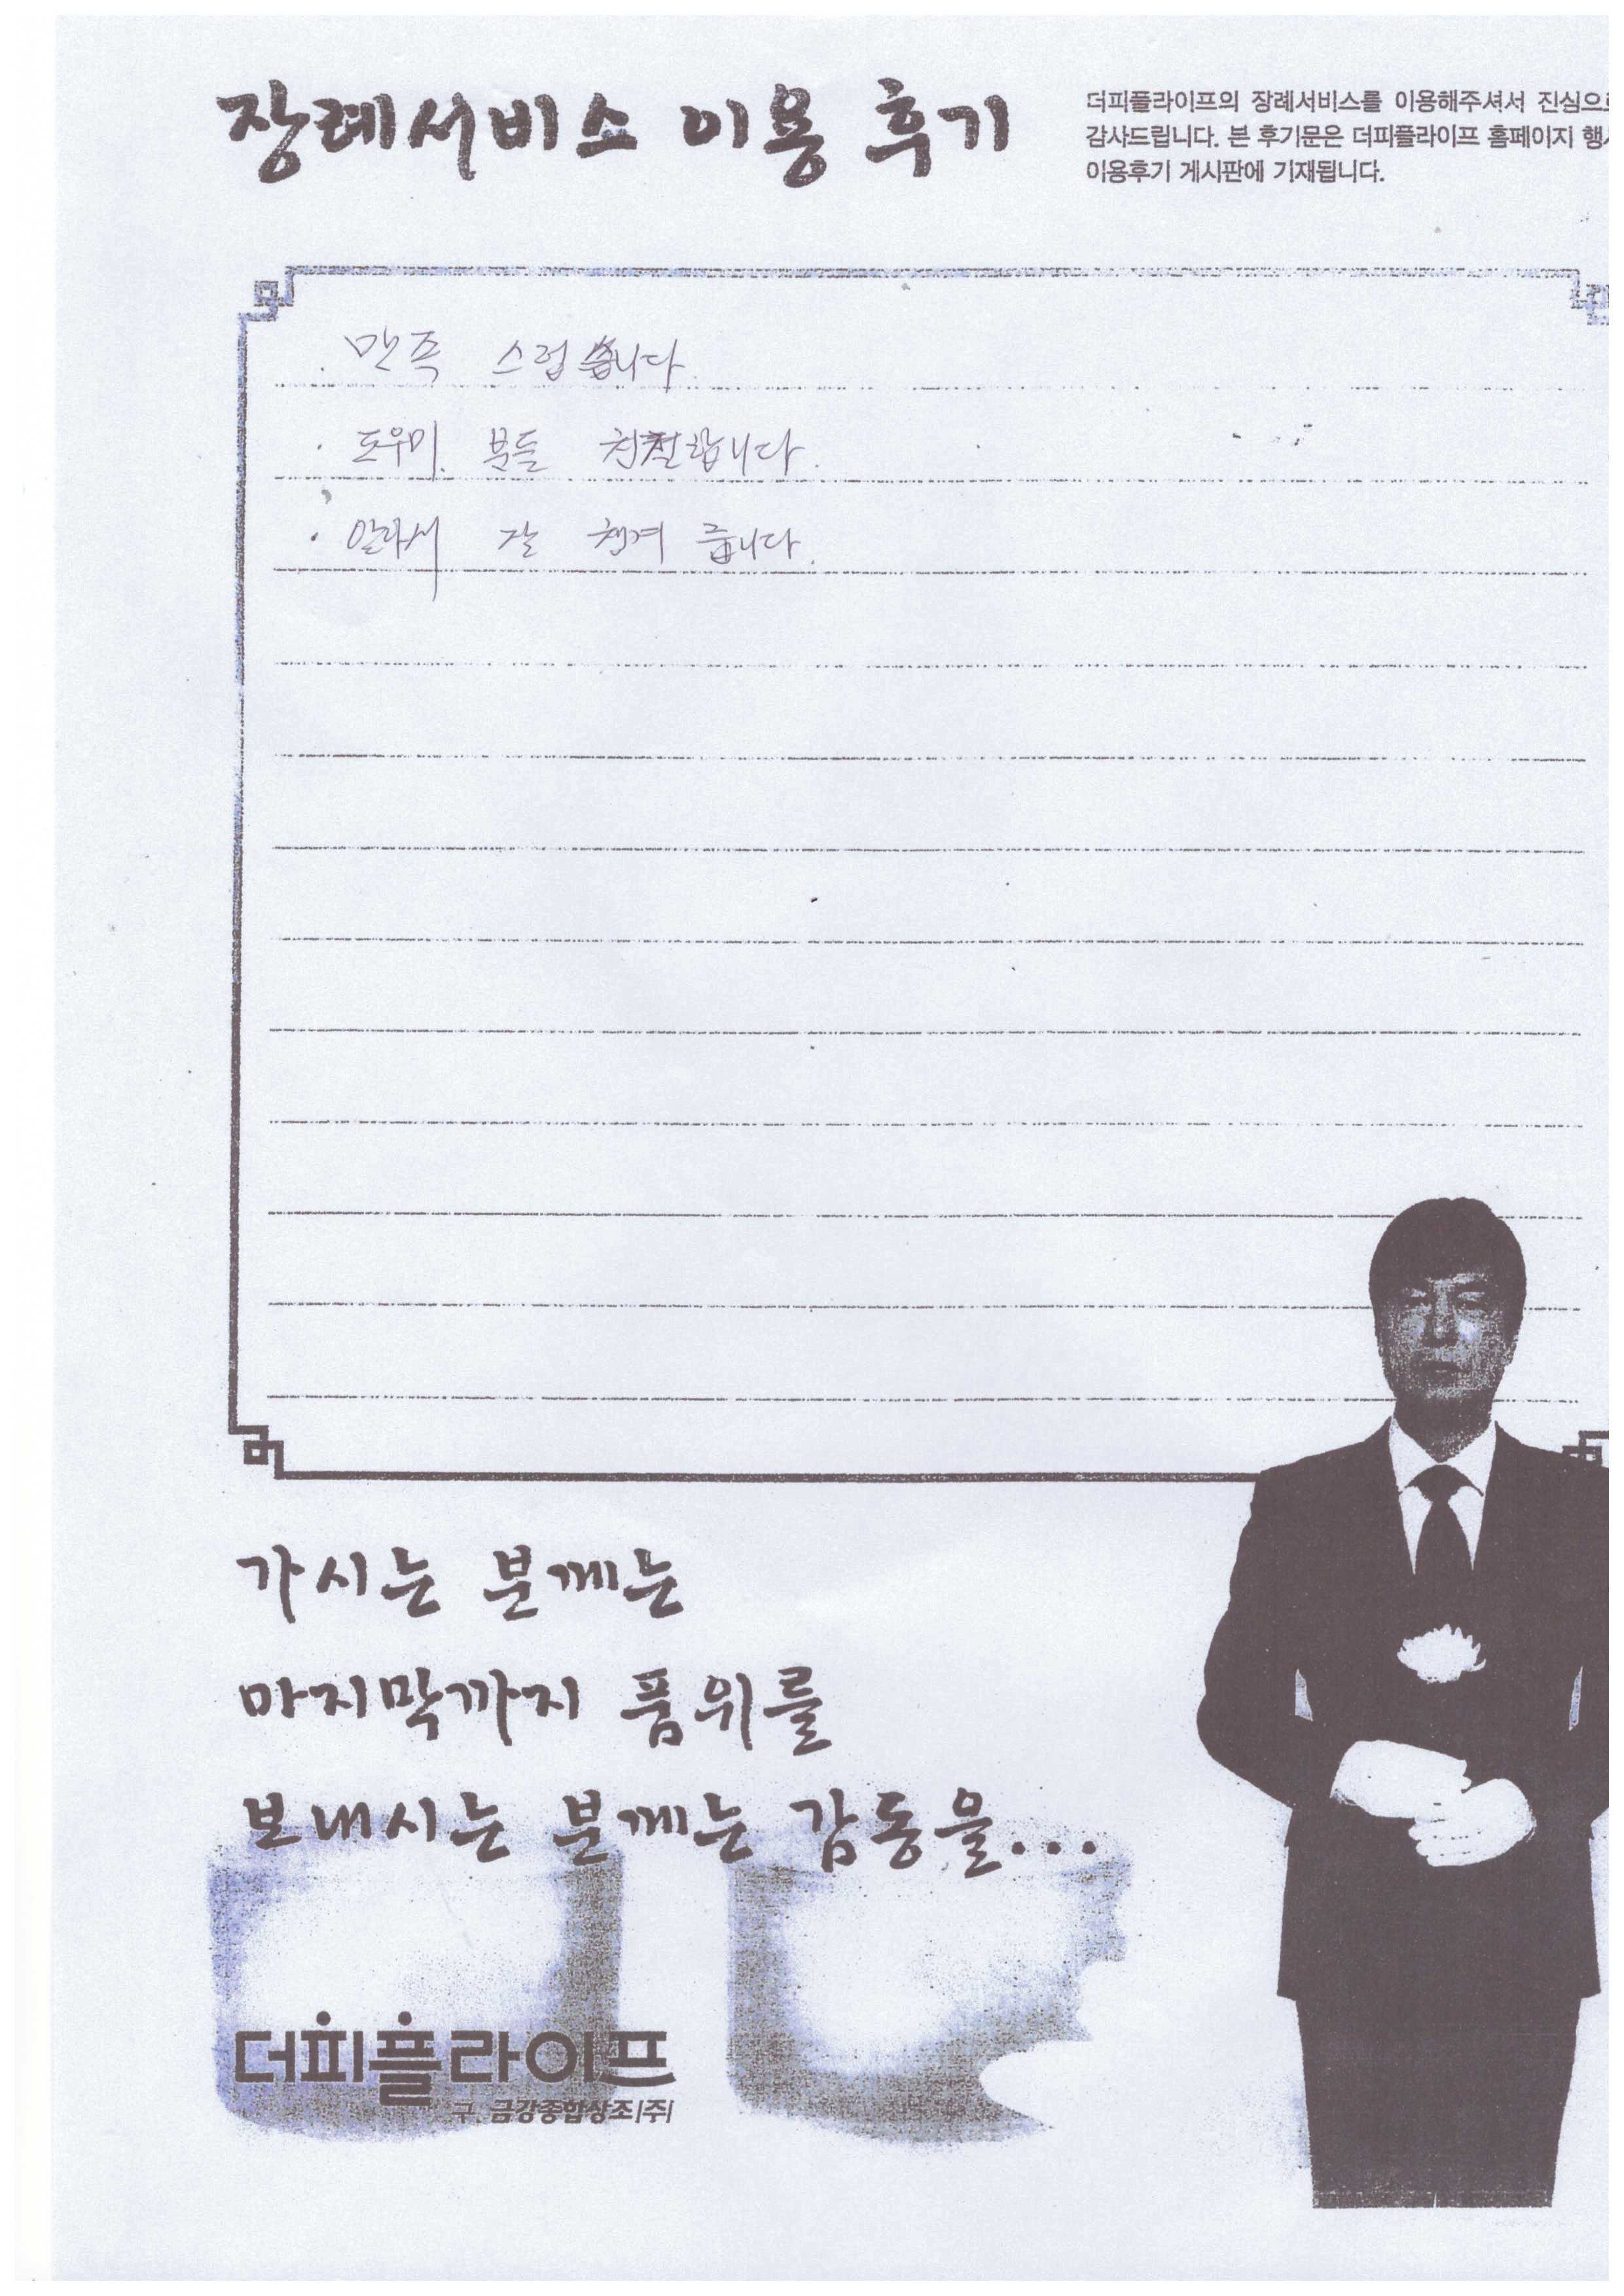 장례서비스 이용 후기
더피플라이프의 장례서비스를 이용해주셔서 진심으로
감사드립니다. 본 후기문은 더피플라이프 홈페이지 행사
이용후기 게시판에 기재됩니다.
· 만족 스럽습니다.
· 도우미 분들 친절합니다.
· 알아서 잘 챙겨 줍니다.
가시는 분께는
마지막까지 품위를
보내시는 분께는 감동을...
더피플라이프
구. 금강종합상조(주)